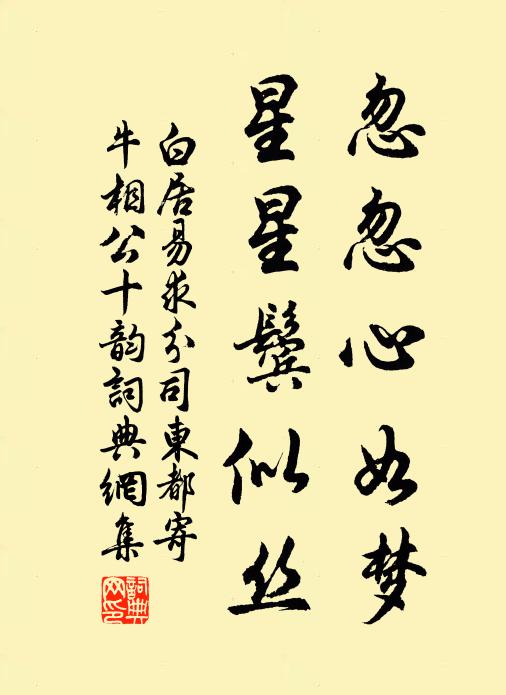 忽忽心如梦
星星鬓似丝
白居易求分司東都寄
牛相公十韵詞典網集
詞典
网印